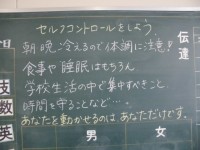 セルフコントロールをしよう
朝晩冷えるので体調に注意!
食事や睡眠はもちろん
学校生活の中で集中すべきこと
時間を守ることなど…。
あなたを動かせるのはあなただけです。
伝達
技
数
英
男
女